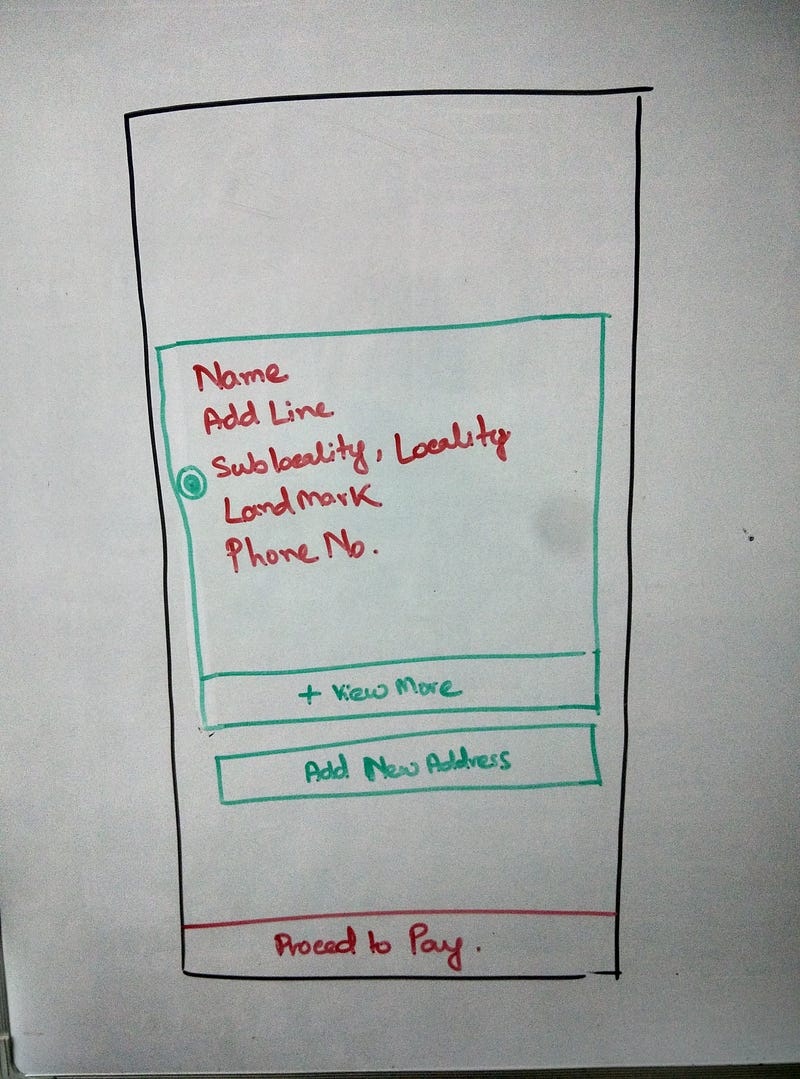 Name
Add Line
Sublocality, Locality
Landmark
Phone No.
+ View More
Add New Address
Proceed to Pay.